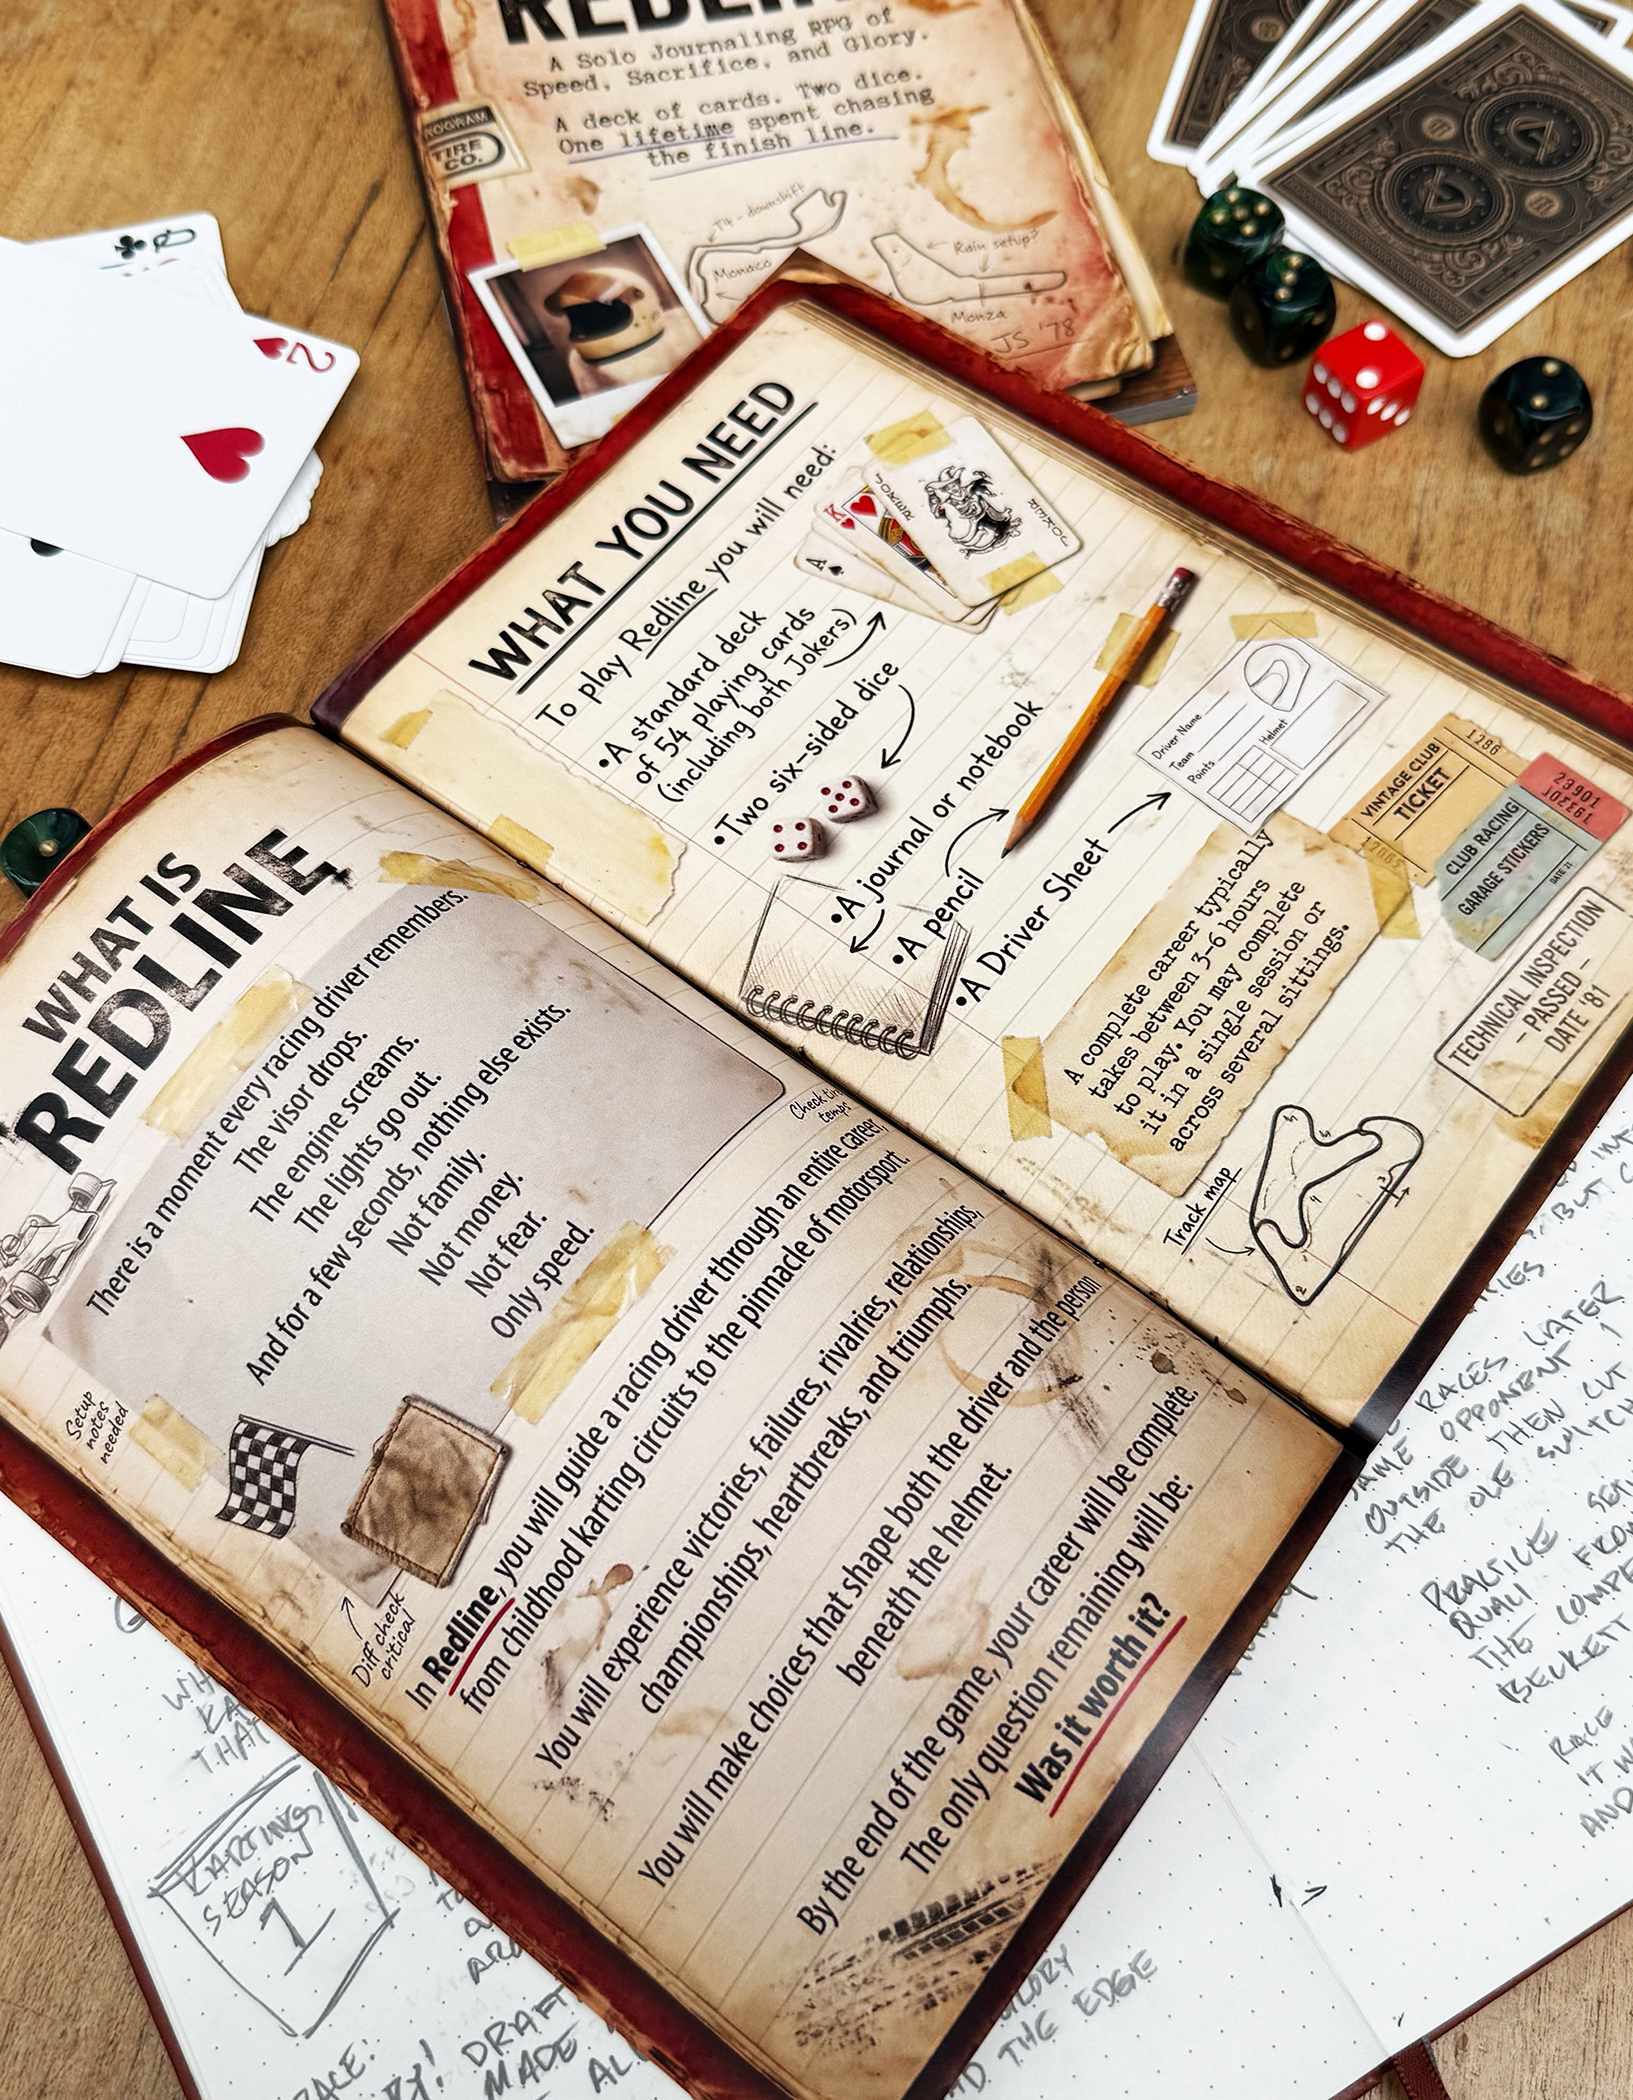 A Solo Journaling RPG of
Speed, Sacrifice, and Glory.
A deck of cards. Two dice.
One lifetime spent chasing
the finish line.
TIRE
CO.
T4 - downshift
Monaco
Rain setup?
Monza
JS '78
Q
2
WHAT YOU NEED
To play Redline you will need:
•A standard deck
of 54 playing cards
(including both Jokers)
•Two six-sided dice
•A journal or notebook
•A pencil
•A Driver Sheet
A
K
JOKER
JOKER
Driver Name
Team
Points
Helmet
VINTAGE CLUB
TICKET
1286
CLUB RACING
GARAGE STICKERS
23901
A complete career typically
takes between 3-6 hours
to play. You may complete
it in a single session or
across several sittings.
TECHNICAL INSPECTION
- PASSED -
DATE '81
Track map
WHAT IS
REDLINE
There is a moment every racing driver remembers.
The visor drops.
The engine screams.
The lights go out.
And for a few seconds, nothing else exists.
Not family.
Not money.
Not fear.
Only speed.
Setup
notes
needed
Diff check
critical
Check
temps
In Redline, you will guide a racing driver through an entire career,
from childhood karting circuits to the pinnacle of motorsport.
You will experience victories, failures, rivalries, relationships,
championships, heartbreaks, and triumphs.
You will make choices that shape both the driver and the person
beneath the helmet.
By the end of the game, your career will be complete.
The only question remaining will be:
Was it worth it?
KARTING
SEASON
1
DRAFT
MADE
THE EDGE
RACES LATER
SAME OPPONENT
OUTSIDE THEN CUT
THE OLE SWITCH
PRACTICE
QUALI FROM
THE COMPE
BECKETT
RACE
IT W
AND